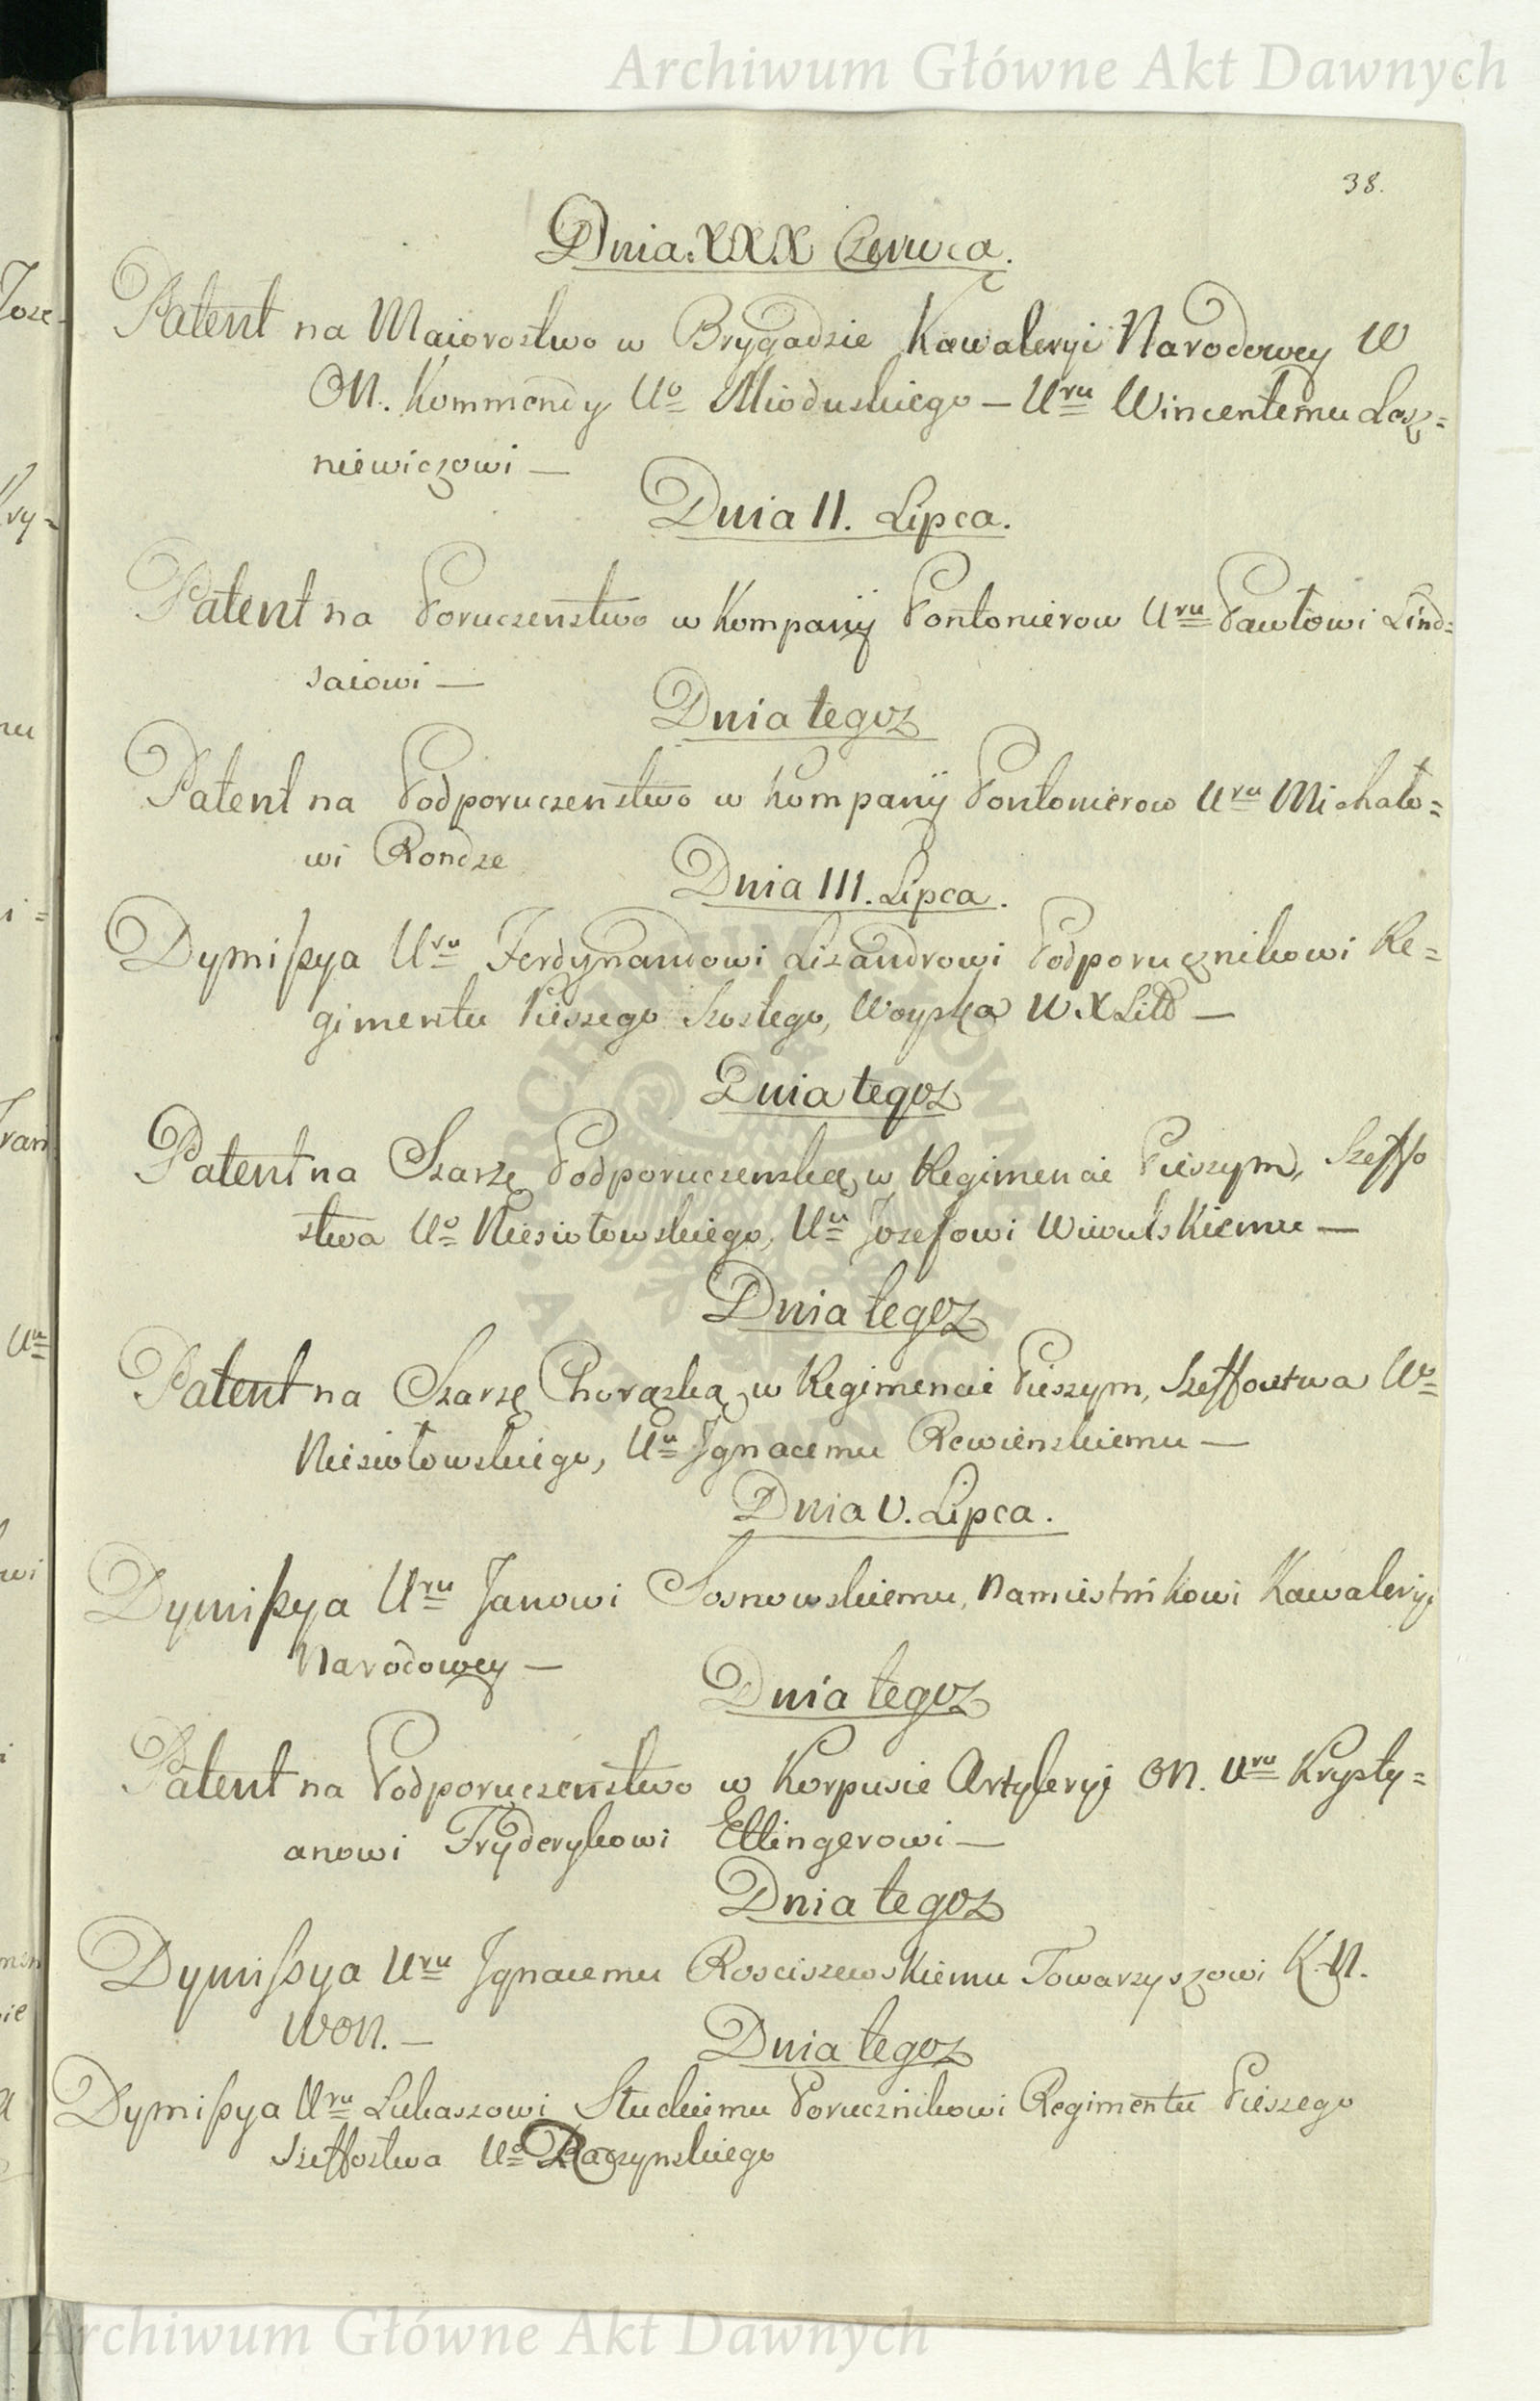 Archiwum Główne Akt Dawnych
38.
Dnia XXX Czerwca.
Patent na Maiorostwo w Brygadzie Kawaleryi Narodowey W
ON. Kommendy Uo Mioduskiego – Uru Wincentemu Łoź=
niewiczowi –
Dnia II. Lipca.
Patent na Poruczenstwo w Kompanij Pontonierow Uru Pawłowi Lind=
saiowi –
Dnia tegoz
Patent na Podporuczenstwo w Kompanij Pontonierow Uru Michało=
wi Rondze
Dnia III. Lipca.
Dymissya Uru Ferdynandowi Lizandrowi Podporucznikowi Re=
gimentu Pieszego Szostego, Woyska W.X Litt –
Dnia tegoz
Patent na Szarzę Podporuczenską w Regimencie Pieszym, Szeffo
stwa Uo Niesiołowskiego, Uu Jozefowi Wiwulskiemu –
Dnia tegoz
Patent na Szarzę Chorązką w Regimencie Pieszym, Szeffostwa Uo
Niesiołowskiego, Uu Jgnacemu Rewienskiemu –
Dnia V. Lipca.
Dymissya Uru Janowi Sosnowskiemu, Namiestnikowi Kawaleryi
Narodowey –
Dnia tegoz
Patent na Podporuczenstwo w Korpusie Artyleryi ON. Uru Krysty=
anowi Fryderykowi Ettingerowi –
Dnia tegoz
Dymissya Uru Jgnacemu Rosciszewskiemu Towarzyszowi K.N.
WON. –
Dnia tegoz
Dymissya Uru Łukaszowi Stuckiemu Porucznikowi Regimentu Pieszego
Szeffostwa Uo Raczynskiego
Archiwum Główne Akt Dawnych